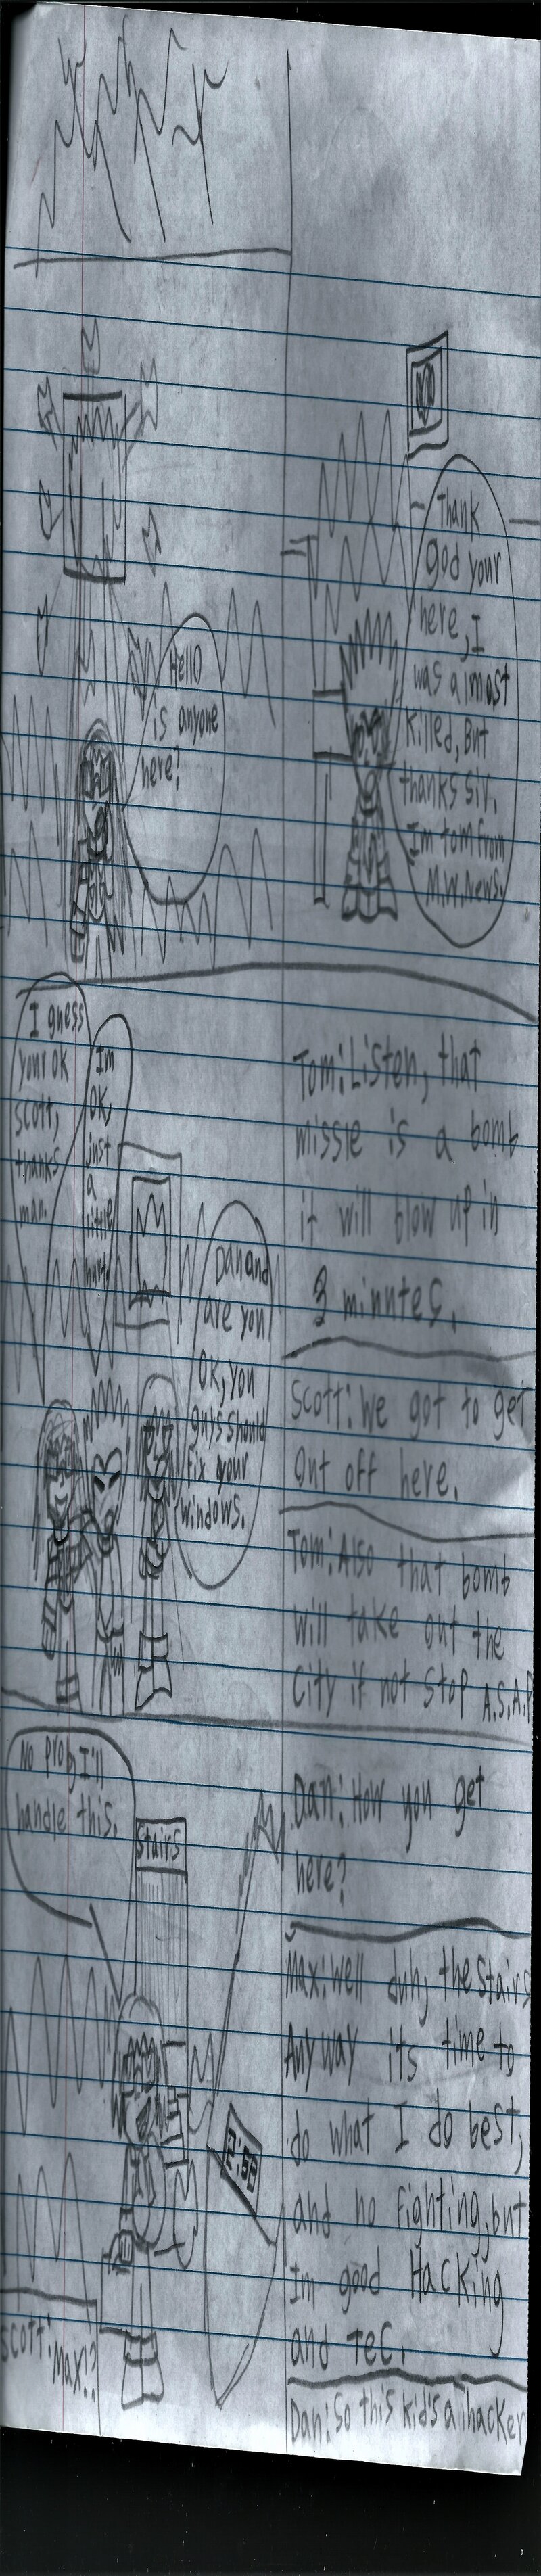 Hello
is anyone
here?
Thank
god your
here, I
was a most
killed, But
thanks sir.
Im tom from
M.W. News.
I guess
your ok
scott,
thanks
man.
Im
OK,
just
a
little
Danand
are you
OK, you
guys should
fix your
windows.
Tom: Listen, that
missle is a bomb
it will blow up in
3 minutes.
Scott: We got to get
out off here.
Tom: Also that bomb
will take out the
City if not stop A.S.A.P
No prob Ill
handle this.
Stairs
Scott: Max!?
Dan: How you get
here?
Max: well duh, the stairs
Anyway its time to
do what I do best,
and no fighting, but
Im good Hacking
and Tec.
Dan: So this kid's a hacker